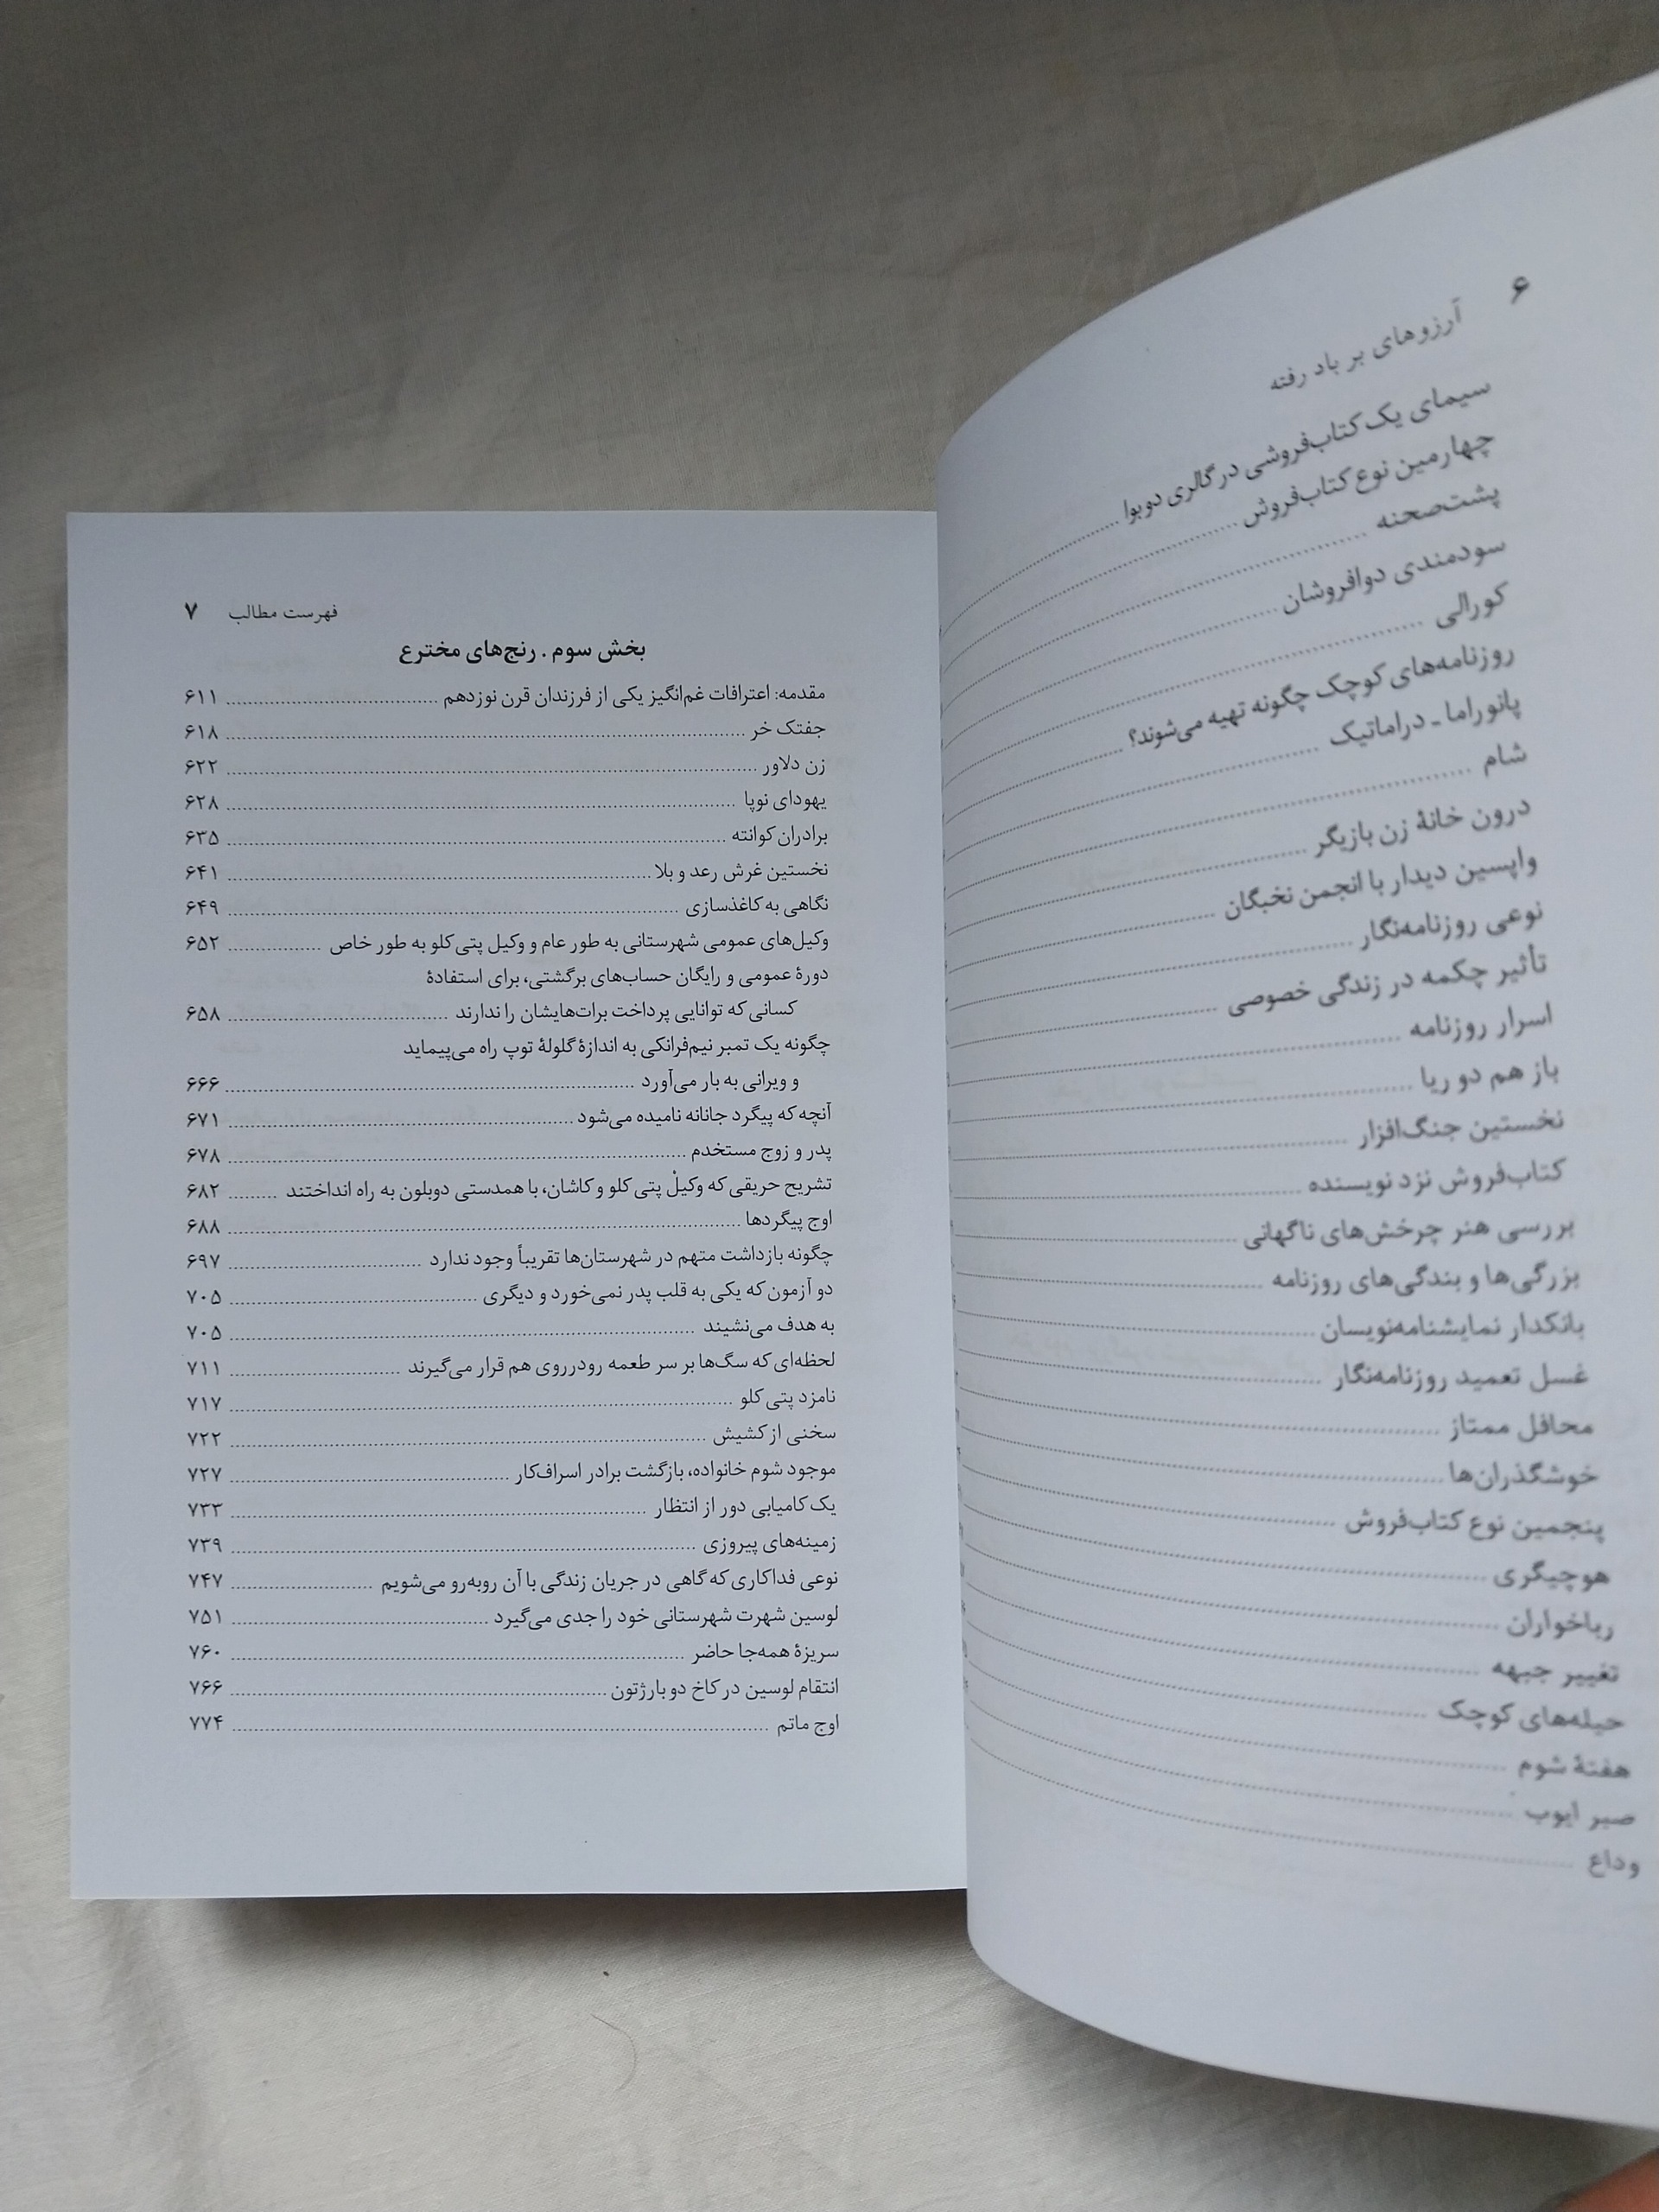 ۶
آرزوهای بر باد رفته
سیمای یک کتاب‌فروشی در گالری دوبوا
چهارمین نوع کتاب‌فروش
پشت‌صحنه
سودمندی دوافروشان
کورالی
روزنامه‌های کوچک چگونه تهیه می‌شوند؟
پانوراما ـ دراماتیک
شام
درون خانهٔ زن بازیگر
واپسین دیدار با انجمن نخبگان
نوعی روزنامه‌نگار
تأثیر چکمه در زندگی خصوصی
اسرار روزنامه
باز هم دو ریا
نخستین جنگ‌افزار
کتاب‌فروش نزد نویسنده
بررسی هنر چرخش‌های ناگهانی
بزرگی‌ها و بندگی‌های روزنامه
بانکدار نمایشنامه‌نویسان
غسل تعمید روزنامه‌نگار
محافل ممتاز
خوشگذران‌ها
پنجمین نوع کتاب‌فروش
هوچیگری
رباخواران
تغییر جبهه
حیله‌های کوچک
هفتهٔ شوم
صبر ایوب
وداع
فهرست مطالب ۷
بخش سوم . رنج‌های مخترع
مقدمه: اعترافات غم‌انگیز یکی از فرزندان قرن نوزدهم ۶۱۱
جفتک خر ۶۱۸
زن دلاور ۶۲۲
یهودای نوپا ۶۲۸
برادران کوانته ۶۳۵
نخستین غرش رعد و بلا ۶۴۱
نگاهی به کاغذسازی ۶۴۹
وکیل‌های عمومی شهرستانی به طور عام و وکیل پتی کلو به طور خاص ۶۵۲
دورهٔ عمومی و رایگان حساب‌های برگشتی، برای استفادهٔ
کسانی که توانایی پرداخت برات‌هایشان را ندارند ۶۵۸
چگونه یک تمبر نیم‌فرانکی به اندازهٔ گلولهٔ توپ راه می‌پیماید
و ویرانی به بار می‌آورد ۶۶۶
آنچه که پیگرد جانانه نامیده می‌شود ۶۷۱
پدر و زوج مستخدم ۶۷۸
تشریح حریقی که وکیلْ پتی کلو و کاشان، با همدستی دوبلون به راه انداختند ۶۸۲
اوج پیگردها ۶۸۸
چگونه بازداشت متهم در شهرستان‌ها تقریباً وجود ندارد ۶۹۷
دو آزمون که یکی به قلب پدر نمی‌خورد و دیگری ۷۰۵
به هدف می‌نشیند ۷۰۵
لحظه‌ای که سگ‌ها بر سر طعمه رودرروی هم قرار می‌گیرند ۷۱۱
نامزد پتی کلو ۷۱۷
سخنی از کشیش ۷۲۲
موجود شوم خانواده، بازگشت برادر اسراف‌کار ۷۲۷
یک کامیابی دور از انتظار ۷۳۳
زمینه‌های پیروزی ۷۳۹
نوعی فداکاری که گاهی در جریان زندگی با آن روبه‌رو می‌شویم ۷۴۷
لوسین شهرت شهرستانی خود را جدی می‌گیرد ۷۵۱
سریزهٔ همه‌جا حاضر ۷۶۰
انتقام لوسین در کاخ دو بارژتون ۷۶۶
اوج ماتم ۷۷۴